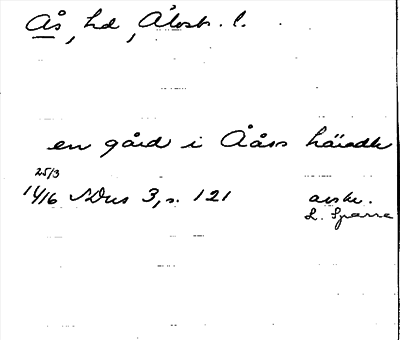 Ås, hd, Älvsb. l.
en gård i Ååss häradh
25/3
1416 SDns 3, s. 121 avskr.
L. Sparre